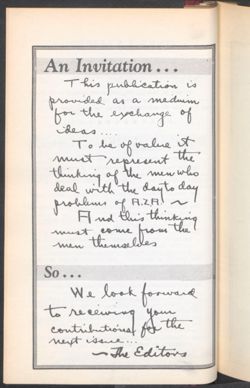 An Invitation...
This publication is
provided as a medium
for the exchange of
ideas....
To be of value it
must represent the
thinking of the men who
deal with the day to day
problems of A.Z.A. ~
And this thinking
must come from the
men themselves
So...
We look forward
to receiving your
contributions for the
next issue...
~ The Editors